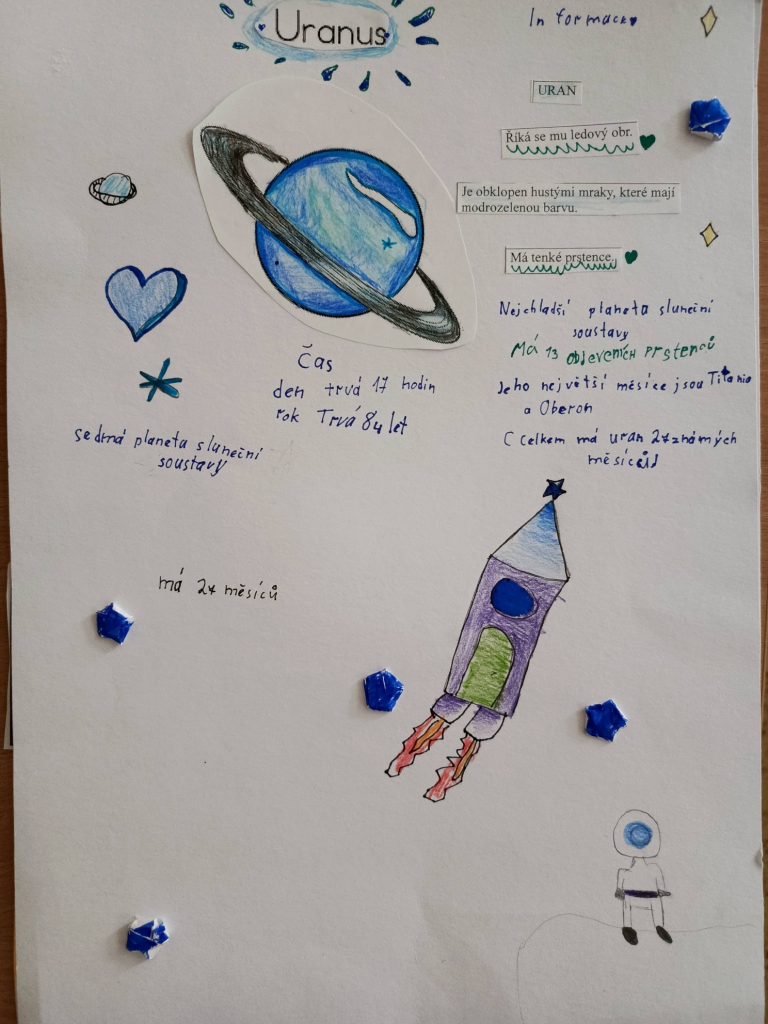 Uranus
In formace
URAN
Říká se mu ledový obr.
Je obklopen hustými mraky, které mají
modrozelenou barvu.
Má tenké prstence.
Nejchladší planeta sluneční
soustavy
Má 13 objevených prstenců
Jeho největší měsíce jsou Titania
a Oberon
C Celkem má uran 27 známých
měsíců
Čas
den trvá 17 hodin
rok Trvá 84 let
sedmá planeta sluneční
soustavy
má 27 měsíců